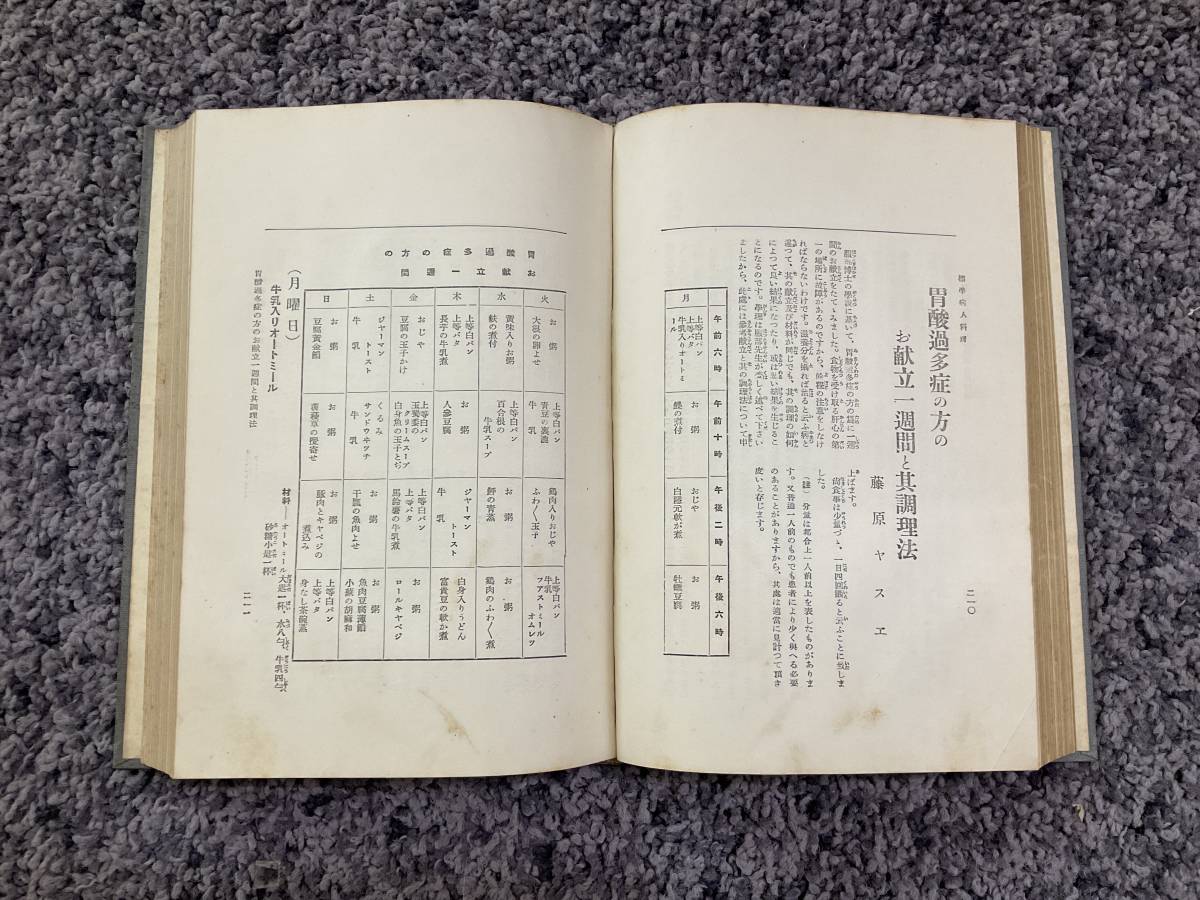 標準病人料理
胃酸過多症の方の
お献立一週間と其調理法
藤原ヤスエ
二一〇
服部博士の學説に基いて、胃酸過多症の方の爲に一週
間のお献立をたてゝみました。食物を受け取る肝心の第
一の場所に故障があるのですから、種々の注意をしなけ
ればならないわけです。滋養分を攝れば治ると云ふ病と
違つて、其の献立及び材料が同じでも、其の調理の如何
によつて良い結果になつたり、或は悪い結果を生じるこ
とになるのです。學理は服部先生が委しく述べて下さい
ましたから、此處には參考献立と其の調理法について申
上げます。
尚食事は少量づゝ、一日四回攝ると云ふことに致しま
した。
(註) 分量は都合上一人前以上を表したものがありま
す。又普通一人前のものでも患者により少く與へる必要
のあることがありますから、其處は適當に見計つて頂き
度いと存じます。
午前六時
午前十時
午後二時
午後六時
月
上等白パン
上等バタ
牛乳入りオートミ
ール
お粥
鰈の煮付
おじや
白隱元軟か煮
お粥
牡蠣豆腐
胃酸過多症の方の
お献立一週間
火
お粥
大根の卵よせ
上等白パン
青豆の裏漉
牛乳
鶏肉入りおじや
ふわ〱玉子
上等白パン
牛乳
フアストミール
オムレツ
水
黄味入りお粥
麩の煮付
上等白パン
百合根の
牛乳スープ
お粥
鮃の青蒸
お粥
鶏肉のふわ〱煮
木
上等白パン
上等バタ
長芋の牛乳煮
お粥
人參豆腐
ジヤーマン
トースト
牛乳
白身入りうどん
富貴豆の軟か煮
金
おじや
豆腐の玉子かけ
上等白パン
玉蜀黍の
クリームスープ
白身魚の玉子とぢ
上等白パン
上等バタ
馬鈴薯の牛乳煮
お粥
ロールキヤベジ
土
ジヤーマン
トースト
牛乳
くるみ
サンドウヰツチ
牛乳
お粥
干瓢の魚肉よせ
お粥
魚肉豆腐蓮餡
小蕪の胡麻和
日
お粥
豆腐黄金餡
お粥
菠薐草の擬寄せ
お粥
豚肉とキヤベジの
煮込み
上等白パン
上等バタ
身なし茶碗蒸
(月曜日)
牛乳入りオートミール
材料――オートミール大匙一杯 水八勺 牛乳四勺
砂糖小匙一杯
胃酸過多症の方のお献立一週間と其調理法
二一一